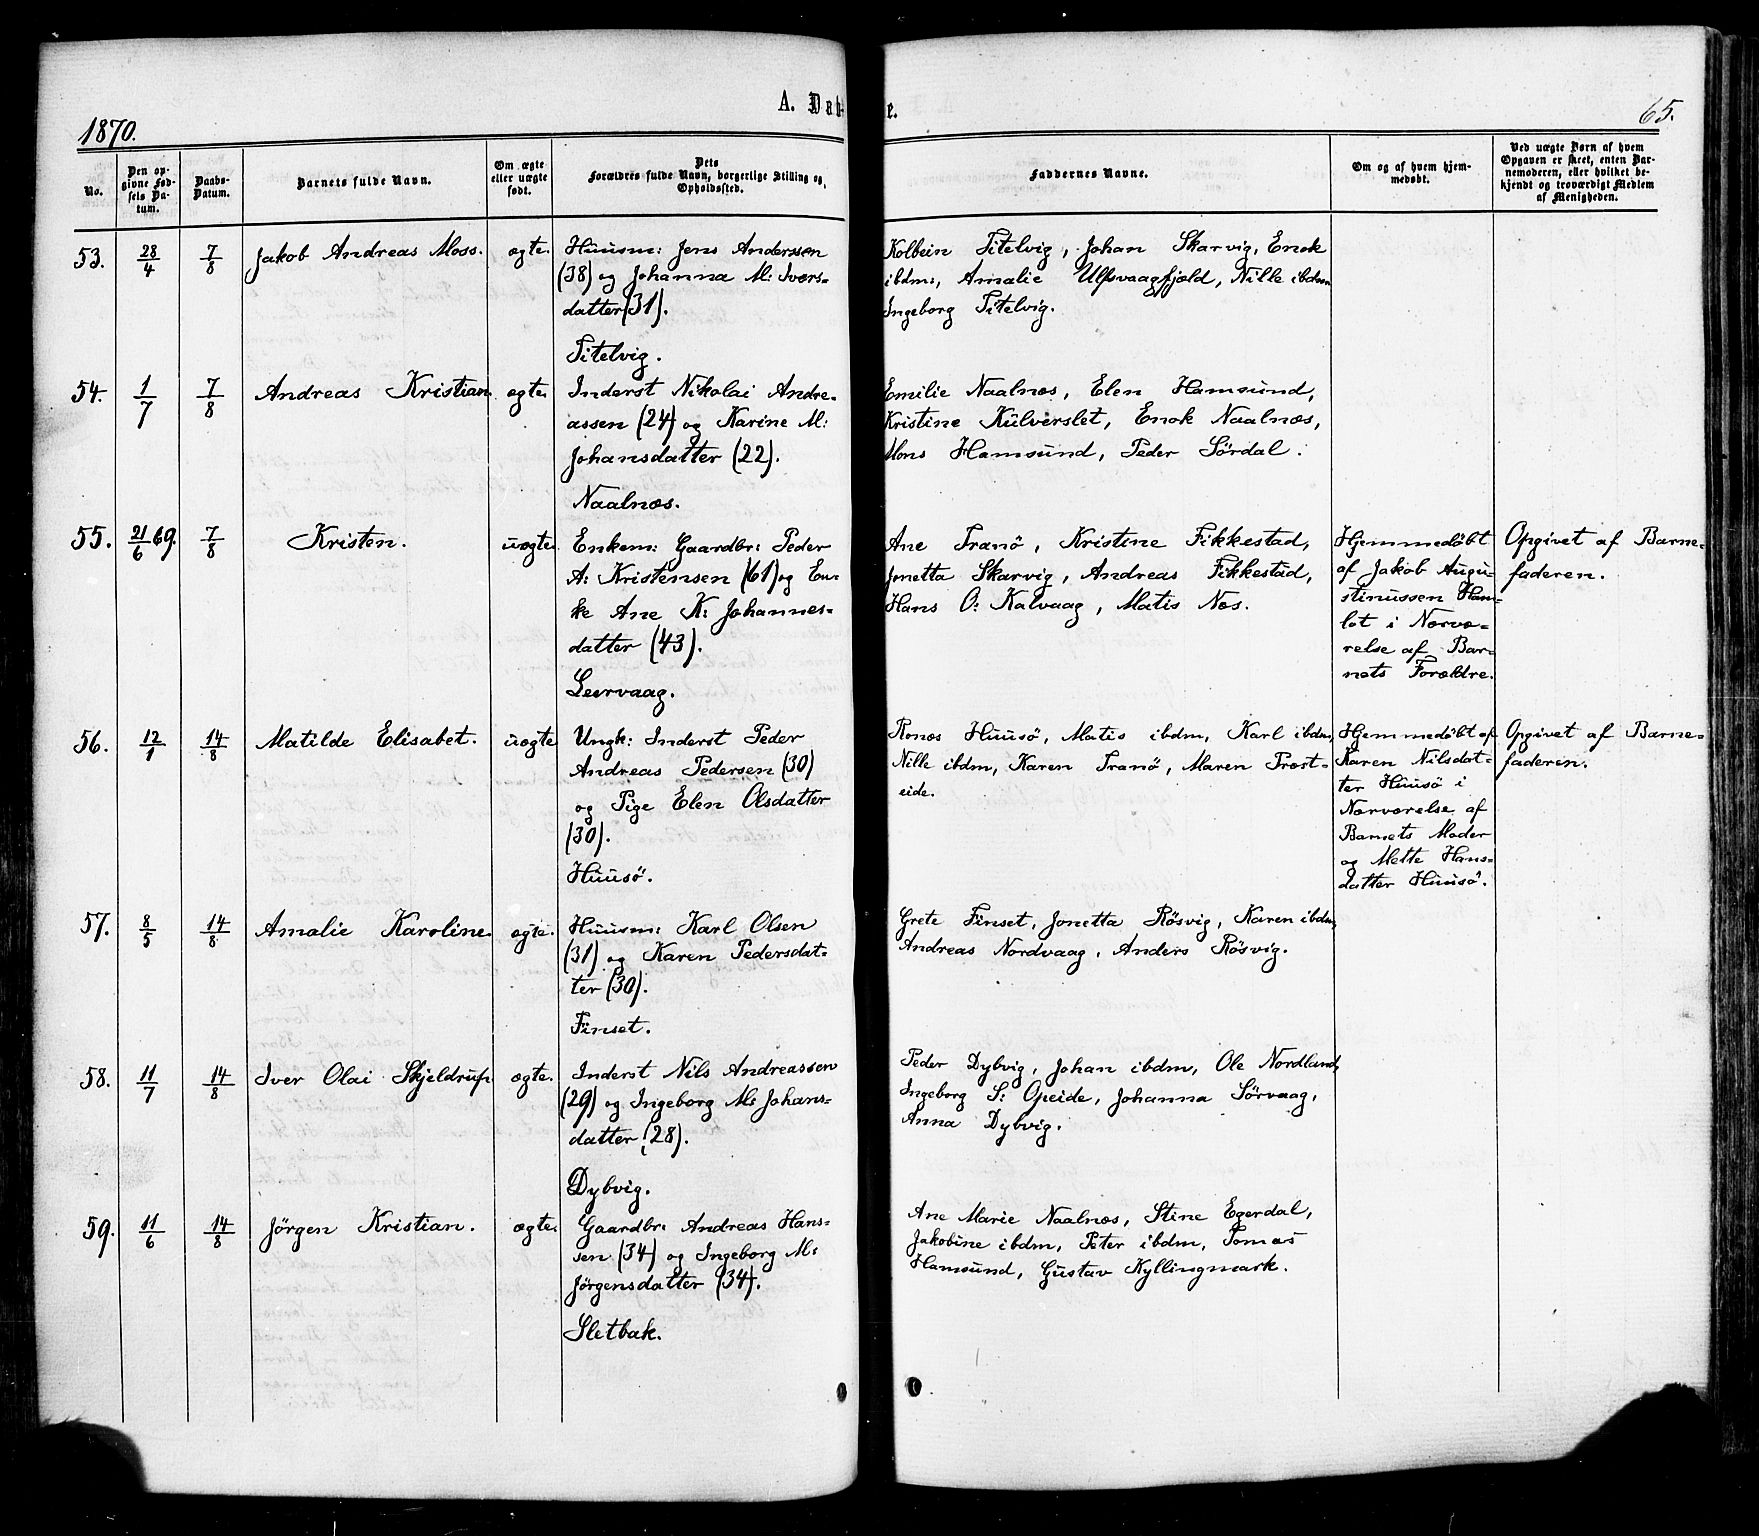 A. Dab-
e.
1870.
65.
No.
Den op-
givne Fød-
sels Da-
tum.
Daabs-
Datum.
Barnets fulde Navn.
Om ægte
eller uægte
født.
Dets
Forældres fulde Navn, borgerlige Stilling og
Opholdssted.
Faddernes Navne.
Om og af hvem hjem-
medøbt.
Ved uægte Børn af hvem
Opgaven er skeet, enten Bar-
nemoderen, eller hvilket be-
kjendt og troværdigt Medlem
af Menigheden.
53. 28/4 7/8 Jakob Andreas Moss. ægte. Huusm: Jens Anderssen
(38) og Johanna M: Ivers-
datter (31).
Titelvig.
Kolbein Titelvig, Johan Skarvig, Enok
ibdm:, Amalie Ulfsvaagfjæld, Nille ibdm
Ingeborg Titelvig.
54. 1/7 7/8 Andreas Kristian ægte. Inderst Nikolai Andre-
assen (24) og Karine M:
Johansdatter (22).
Naalnæs.
Emilie Naalnæs, Elen Hamsund,
Kristine Külverslet, Enok Naalnæs,
Mons Hamsund, Peder Sördal.
55. 21/6 69. 7/8 Kristen. uægte. Enkem: Gaardbr: Peder
A: Kristensen (61) og En-
ke Ane K: Johannes-
datter (43).
Leervaag.
Ane Tranö, Kristine Fikkestad,
Jonetta Skarvig, Andreas Fikkestad,
Hans O: Kalvaag, Matis Næs.
Hjemmedöbt
af Jakob Augu-
stinussen Ham-
let i Nærvæ-
relse af Bar-
nets Forældre.
Opgivet af Barne-
faderen.
56. 12/1 14/8 Matilde Elisabet. uægte Ungk: Inderst Peder
Andreas Pedersen (30)
og Pige Elen Olsdatter
(30).
Huusö.
Rones Huusö, Matis ibdm, Karl ibdm,
Nille ibdm, Karen Tranö, Maren Prest-
eide.
Hjemmedöbt af
Karen Nilsdat-
ter Huusö i
Nærværelse af
Barnets Moder
og Mette Hans-
datter Huusö.
Opgivet af Barne-
faderen.
57. 8/5 14/8 Amalie Karoline. ægte. Huusm: Karl Olsen
(31) og Karen Pedersdat-
ter (30).
Finset.
Grete Finset, Jonetta Rösvig, Karen ibdm,
Andreas Nordvaag, Anders Rösvig.
58. 11/7 14/8 Iver Olai Skjeldrup. ægte. Inderst Nils Andreassen
(29) og Ingeborg M: Johans-
datter (28).
Dybvig.
Peder Dybvig, Johan ibdm, Ole Nordland,
Ingeborg S: Opeide, Johanna Sörvaag,
Anna Dybvig.
59. 11/6 14/8 Jörgen Kristian. ægte. Gaardbr: Andreas Hans-
sen (34) og Ingeborg M:
Jörgensdatter (34).
Sletbak.
Ane Marie Naalnæs, Stine Egerdal,
Jakobine ibdm, Peter ibdm, Tomas
Hamsund, Gustav Kyllingmark.